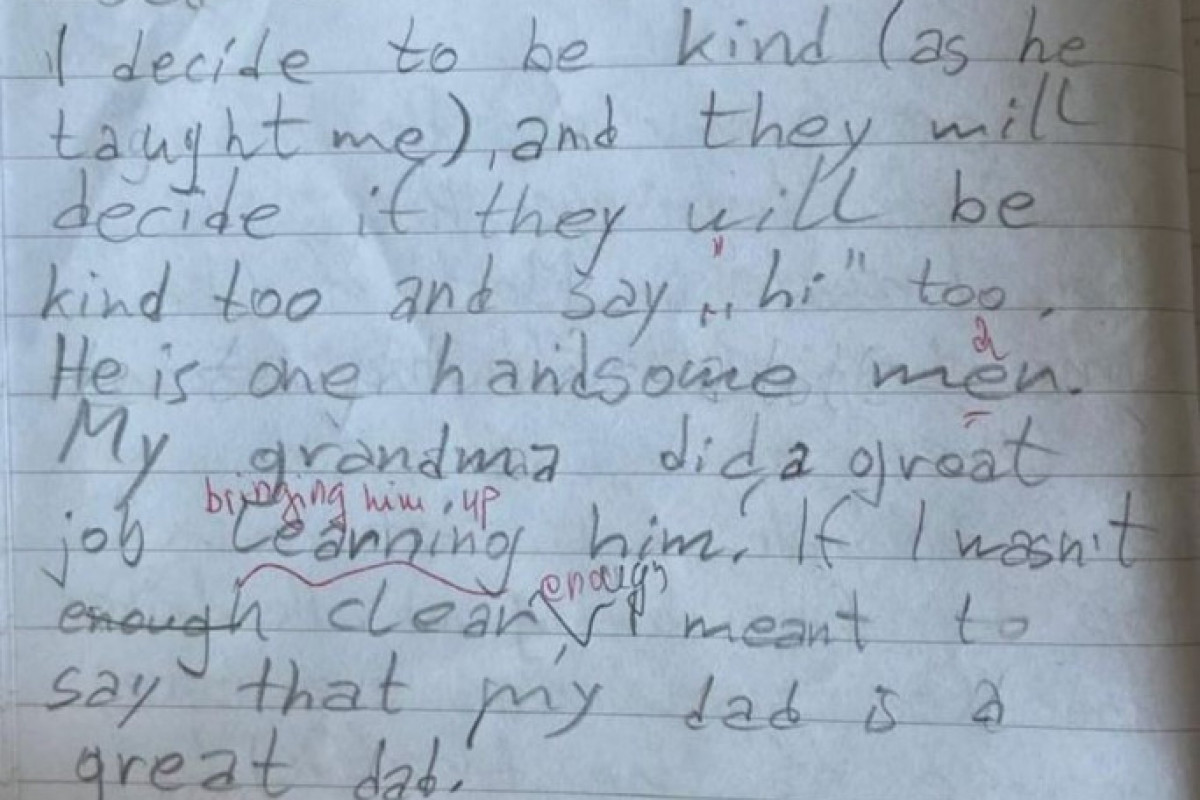 I decide to be kind (as he
taught me), and they will
decide if they will be
"
kind too and say „hi" too.
a
He is one handsome men.
My grandma did a great
bringing him up
job learning him. If I wasn't
enough
enough clear, I meant to
say that my dad is a
great dad.